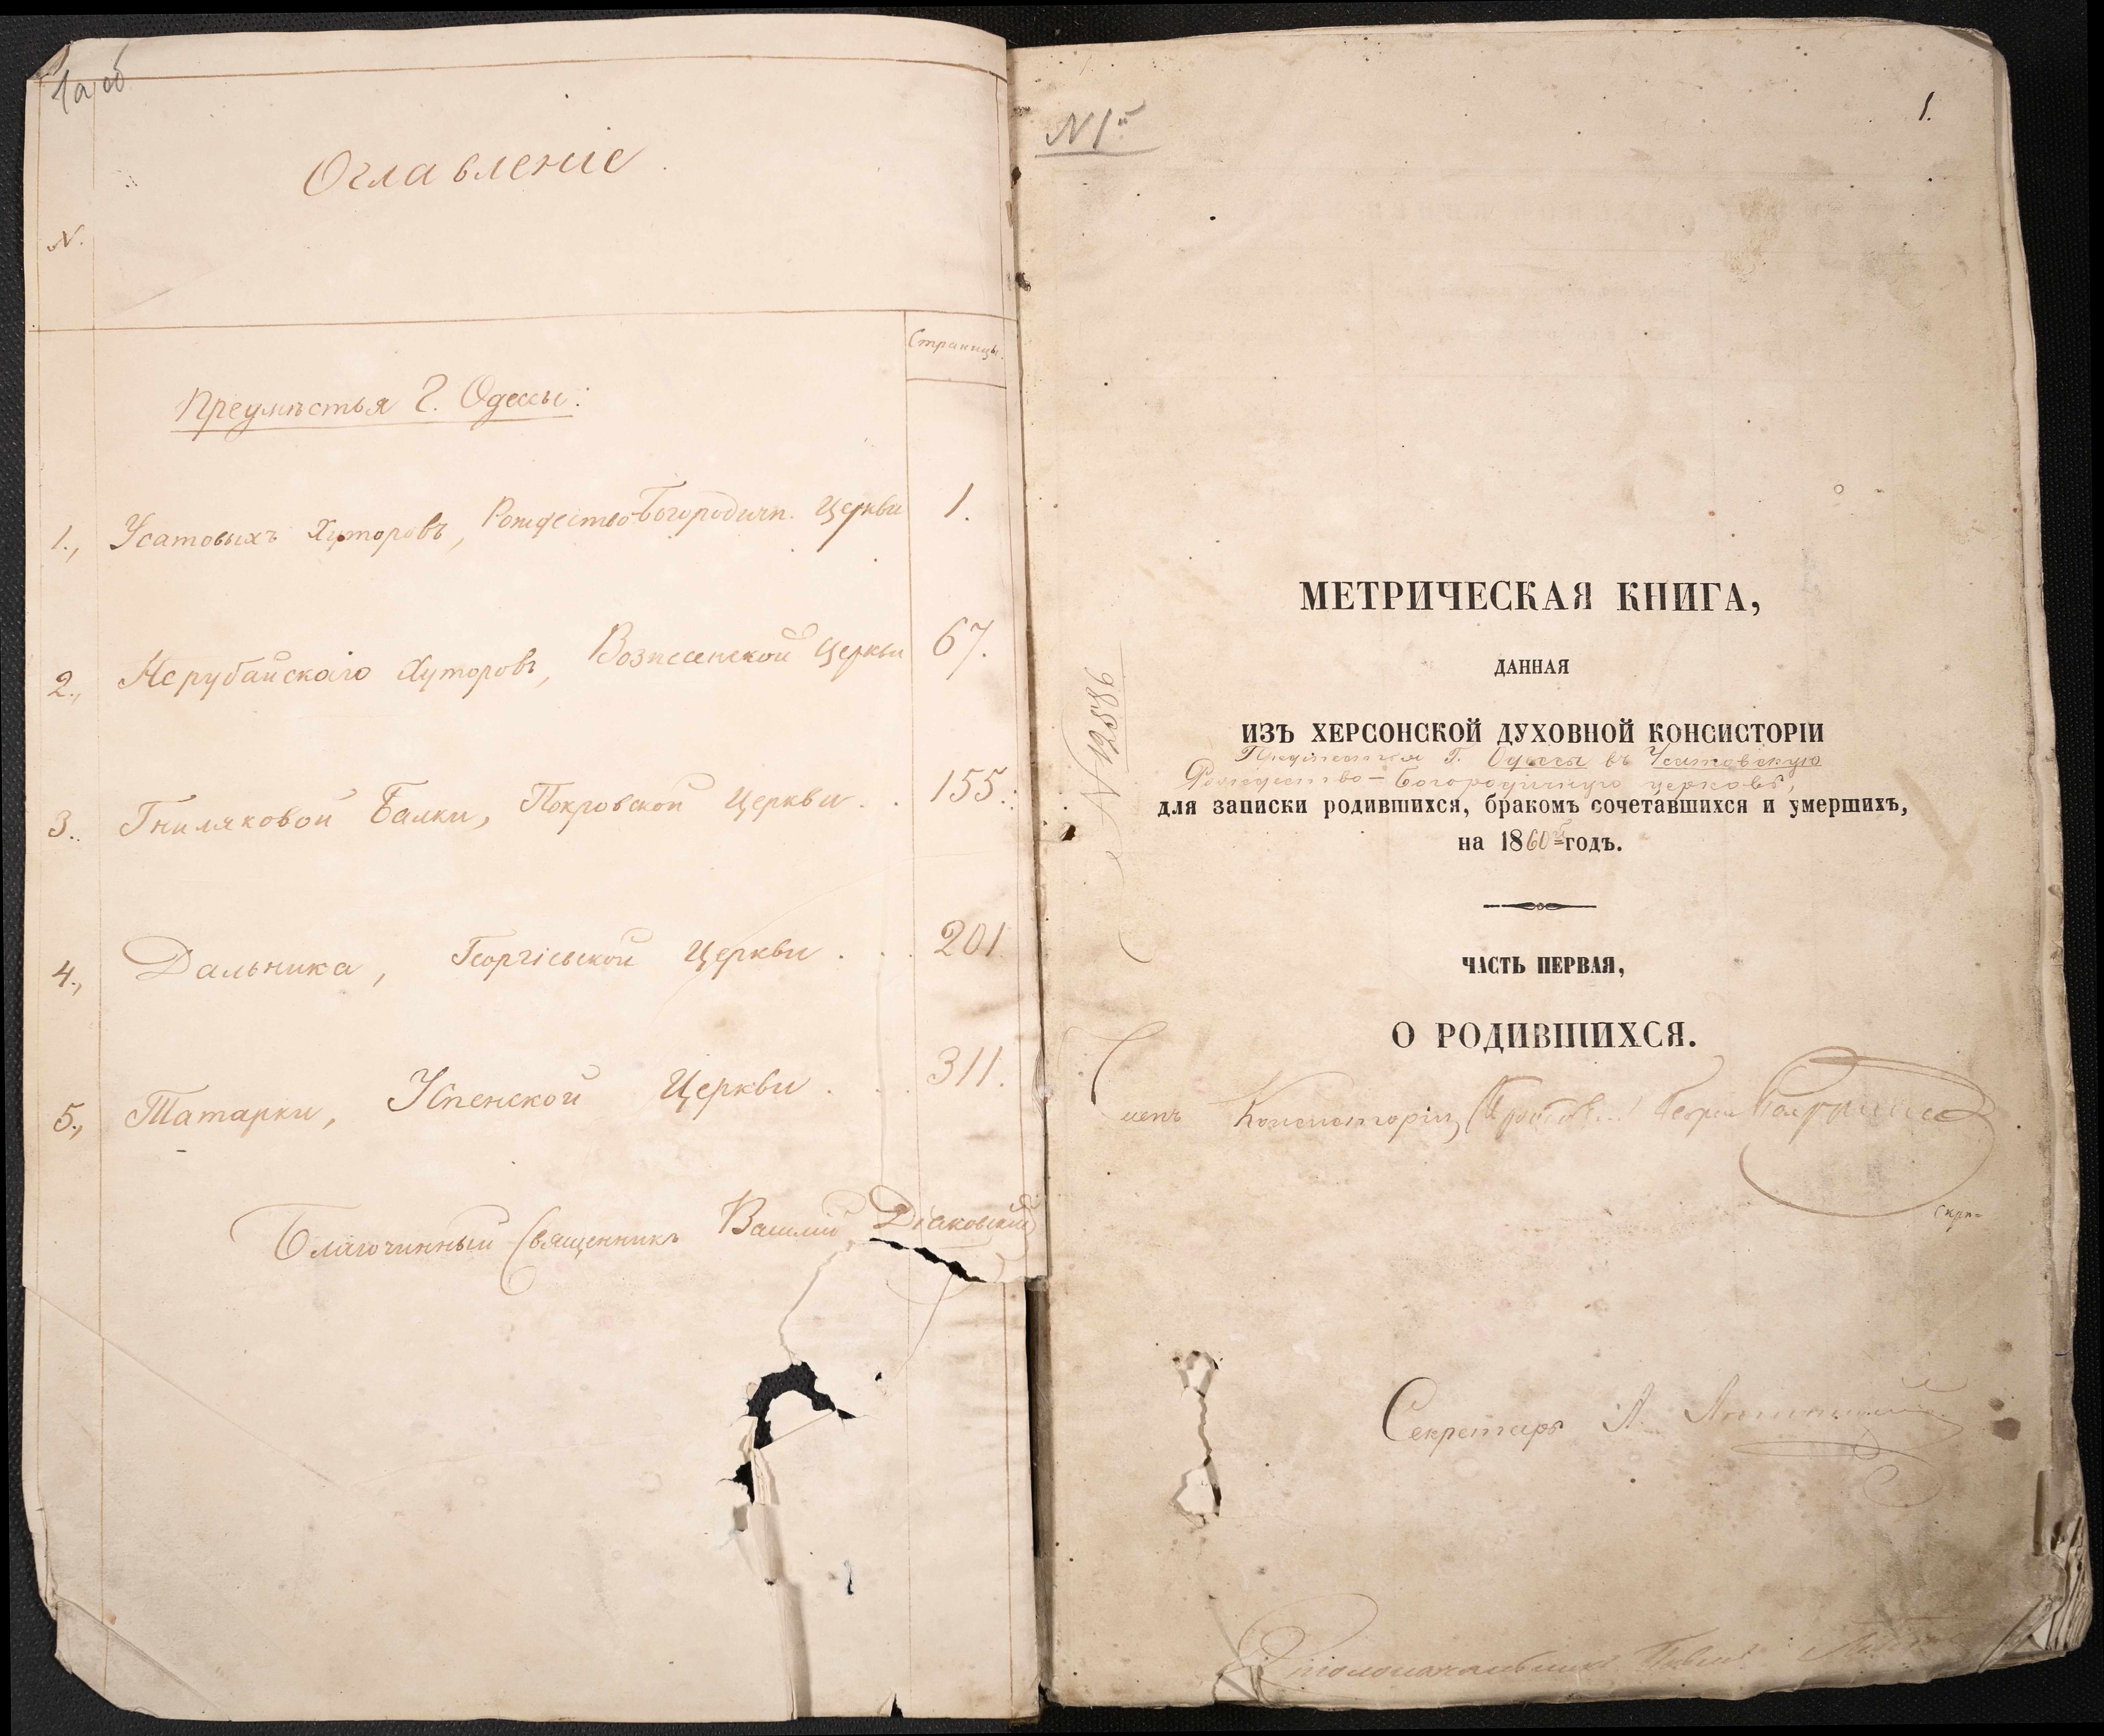 1а об
Оглавленіе
N.
Страницы.
Предмѣстья Г. Одессы:
1., Усатовыхъ Хуторовъ, Рождество-Богородичн. Церкви 1.
2., Нерубайскаго Хуторовъ, Вознесенской Церкви 67.
3. Гниляковой Балки, Покровской Церкви . . 155.
4., Дальника, Георгіевской Церкви . . . 201
5., Татарки, Успенской Церкви . . . 311.
Благочинный Священникъ Василій Діаковскій
N 1й
1.
N 12886
МЕТРИЧЕСКАЯ КНИГА,
ДАННАЯ
ИЗЪ ХЕРСОНСКОЙ ДУХОВНОЙ КОНСИСТОРІИ
Предмѣстья Г. Одессы въ Усатовскую
Рождество-Богородичную церковь,
для записки родившихся, бракомъ сочетавшихся и умершихъ,
на 1860й годъ.
ЧАСТЬ ПЕРВАЯ,
О РОДИВШИХСЯ.
Членъ Консисторіи
Скрѣ=
Секретарь А.
Столоначальникъ Павелъ